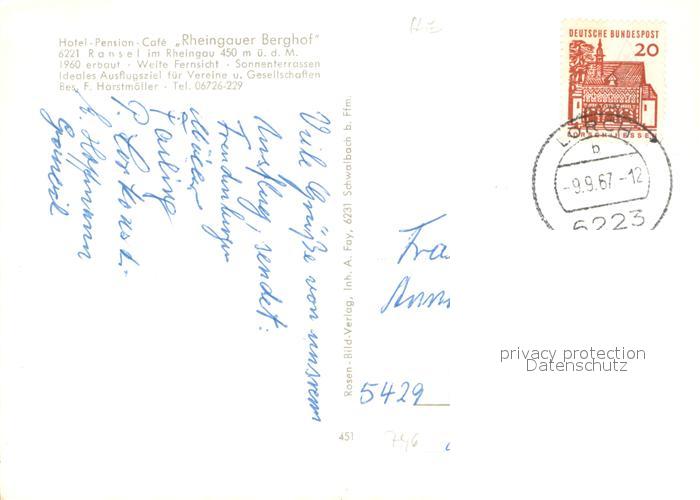 Hotel-Pension-Café „Rheingauer Berghof"
6221 Ransel im Rheingau 450 m ü. d. M.
1960 erbaut · Weite Fernsicht · Sonnenterrassen
Ideales Ausflugsziel für Vereine u. Gesellschaften
Bes. F. Horstmöller · Tel. 06726-229
Viele Grüße von unserem
Ausflug, sendet:
Müller
E. Hoffmann
Rosen-Bild-Verlag, Inh. A. Fay, 6231 Schwalbach b. Ffm.
451
DEUTSCHE BUNDESPOST
20
LORSCH/HESSEN
b
-9.9.67-12
6223
Fra
5429
796
privacy protection
Datenschutz